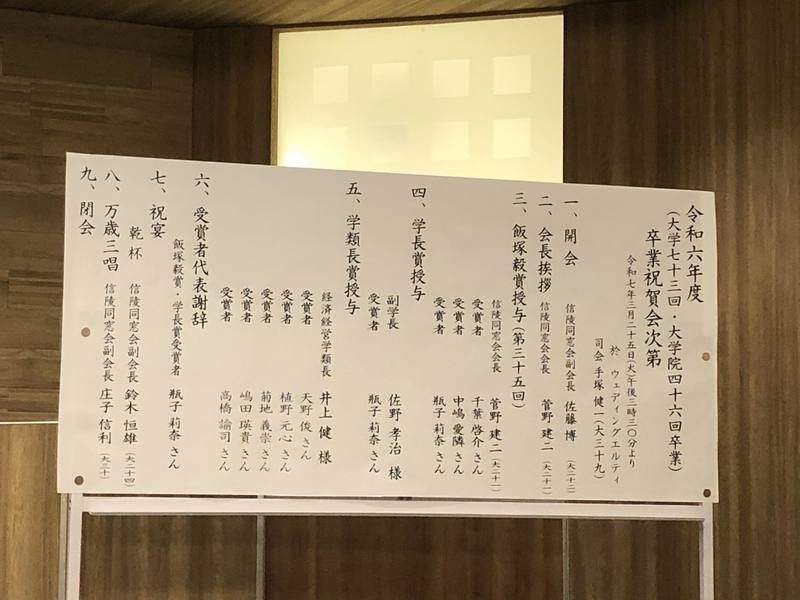 令和六年度
(大学七十三回・大学院四十六回卒業)
卒業祝賀会次第
令和七年三月二十五日(火)午後三時三〇分より
於 ウェディングエルティ
司会 手塚 健一(大三十九)
一、開会 信陵同窓会副会長 佐藤 博(大二十二)
二、会長挨拶 信陵同窓会会長 菅野 建二(大二十一)
三、飯塚毅賞授与(第三十五回)
信陵同窓会会長 菅野 建二(大二十一)
受賞者 千葉 啓介さん
受賞者 中嶋 愛隣さん
受賞者 瓶子 莉奈さん
四、学長賞授与
副学長 佐野 孝治 様
受賞者 瓶子 莉奈さん
五、学類長賞授与
経済経営学類長 井上 健 様
受賞者 天野 俊さん
受賞者 植野 元心さん
受賞者 菊地 義崇さん
受賞者 嶋田 瑛貴さん
受賞者 高橋 諭司さん
六、受賞者代表謝辞
飯塚毅賞・学長賞受賞者 瓶子 莉奈さん
七、祝宴
乾杯 信陵同窓会副会長 鈴木 恒雄(大二十四)
八、万歳三唱 信陵同窓会副会長 庄子 信利(大三十)
九、閉会